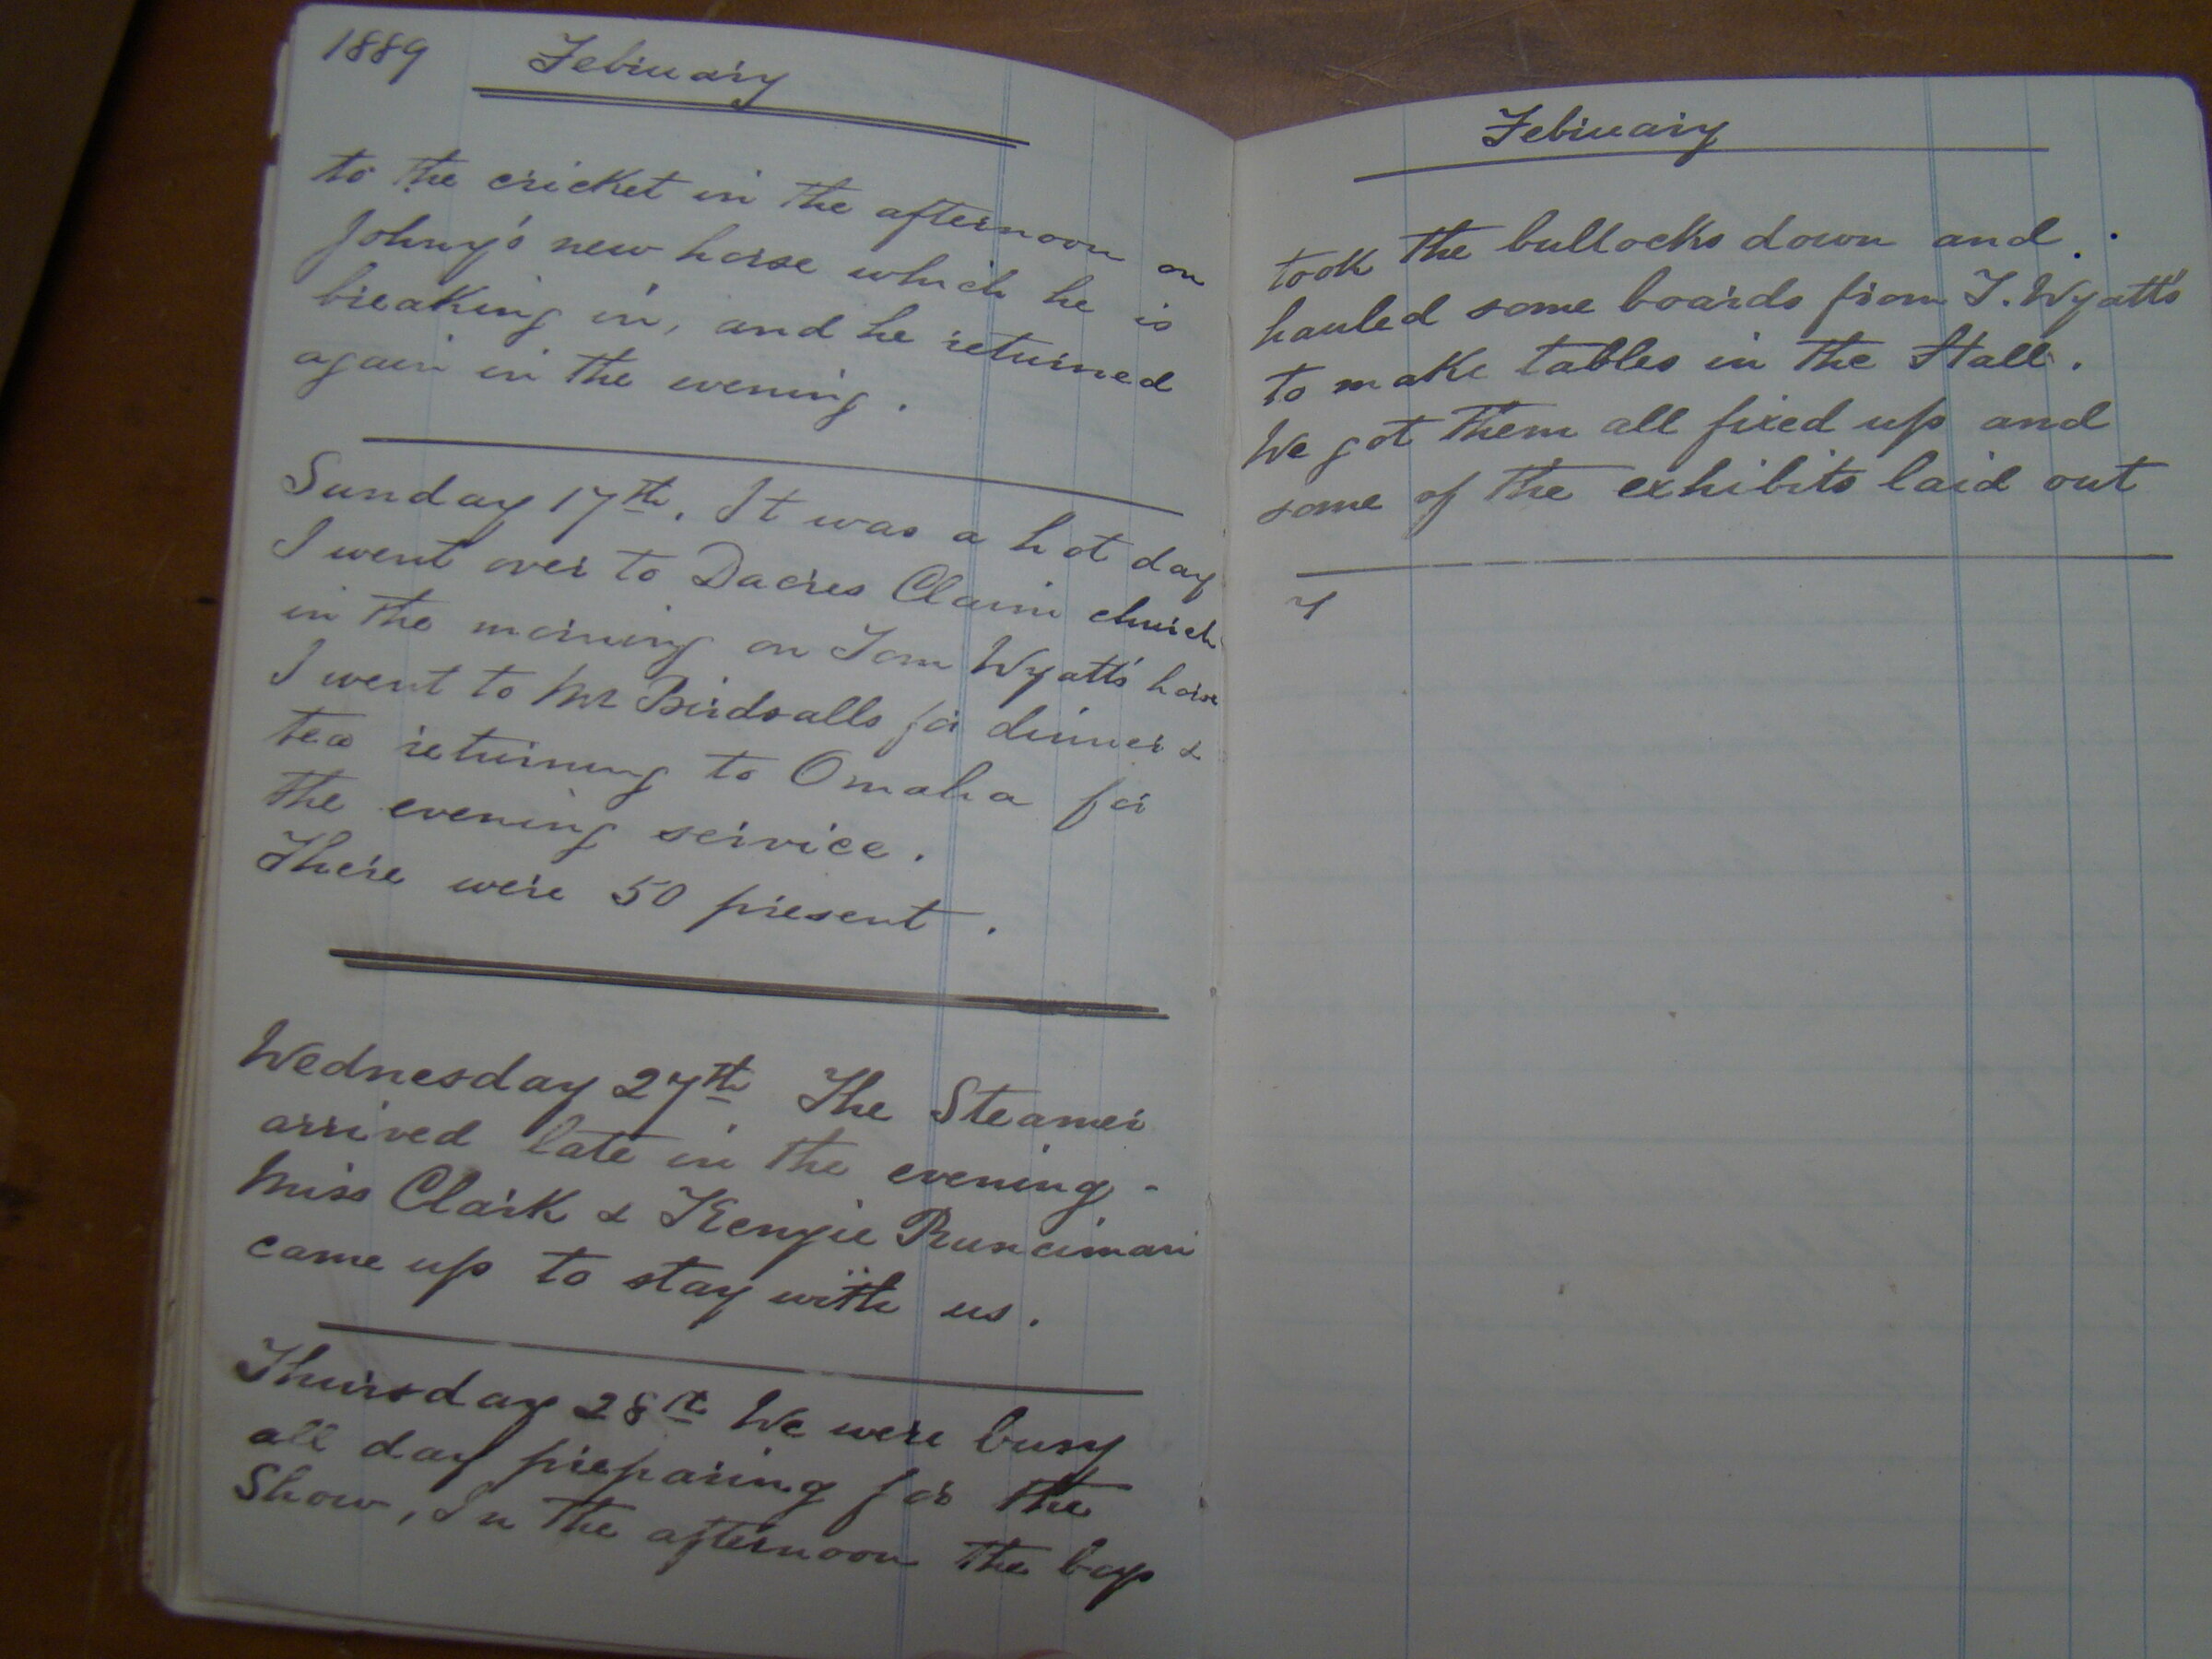 1889 February
to the cricket in the afternoon on
Johny's new horse which he is
breaking in, and he returned
again in the evening.
Sunday 17th. It was a hot day
I went over to Dacres Claim church
in the morning on Tom Wyatt's horse
I went to Mr Birdsalls for dinner &
tea returning to Omaha for
the evening service.
There were 50 present.
Wednesday 27th The Steamer
arrived late in the evening -
Miss Clark & Kenzie Runciman
came up to stay with us.
Thursday 28th We were busy
all day preparing for the
Show, In the afternoon the boys
February
took the bullocks down and.
hauled some boards from T. Wyatt's
to make tables in the Hall.
We got them all fixed up and
some of the exhibits laid out